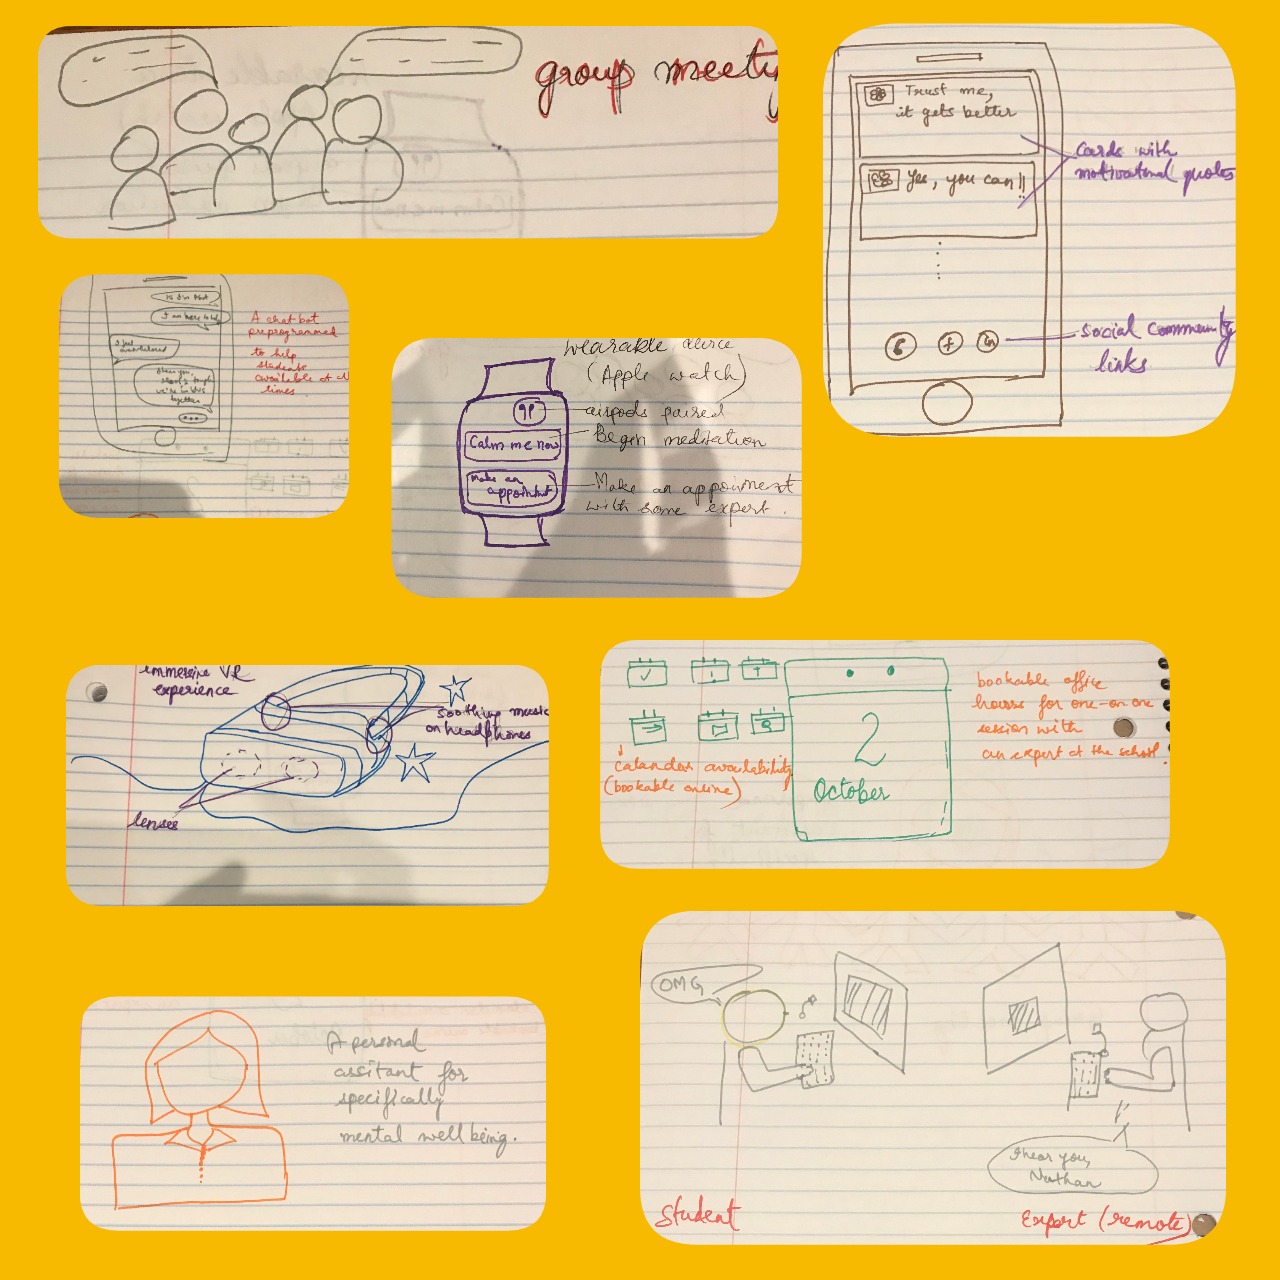 group meeting
Trust me,
it gets better
Yes, you can!!
cards with
motivational quotes
social community
links
I am here to help
I feel
overwhelmed
together
A chat bot
preprogrammed
to help
students
available at
times
wearable device
(Apple watch)
airpods paired
Calm me now
Begin meditation
Make an
appointmt
Make an appoinment
with some expert.
immersive VR
experience
soothing music
on headphones
lenses
2
October
calander availability
(bookable online)
bookable office
hours for one-on-one
session with
an expert at the school.
A personal
assitant for
specifically
mental well being.
OMG
I hear you,
Nathan
Student
Expert (remote)